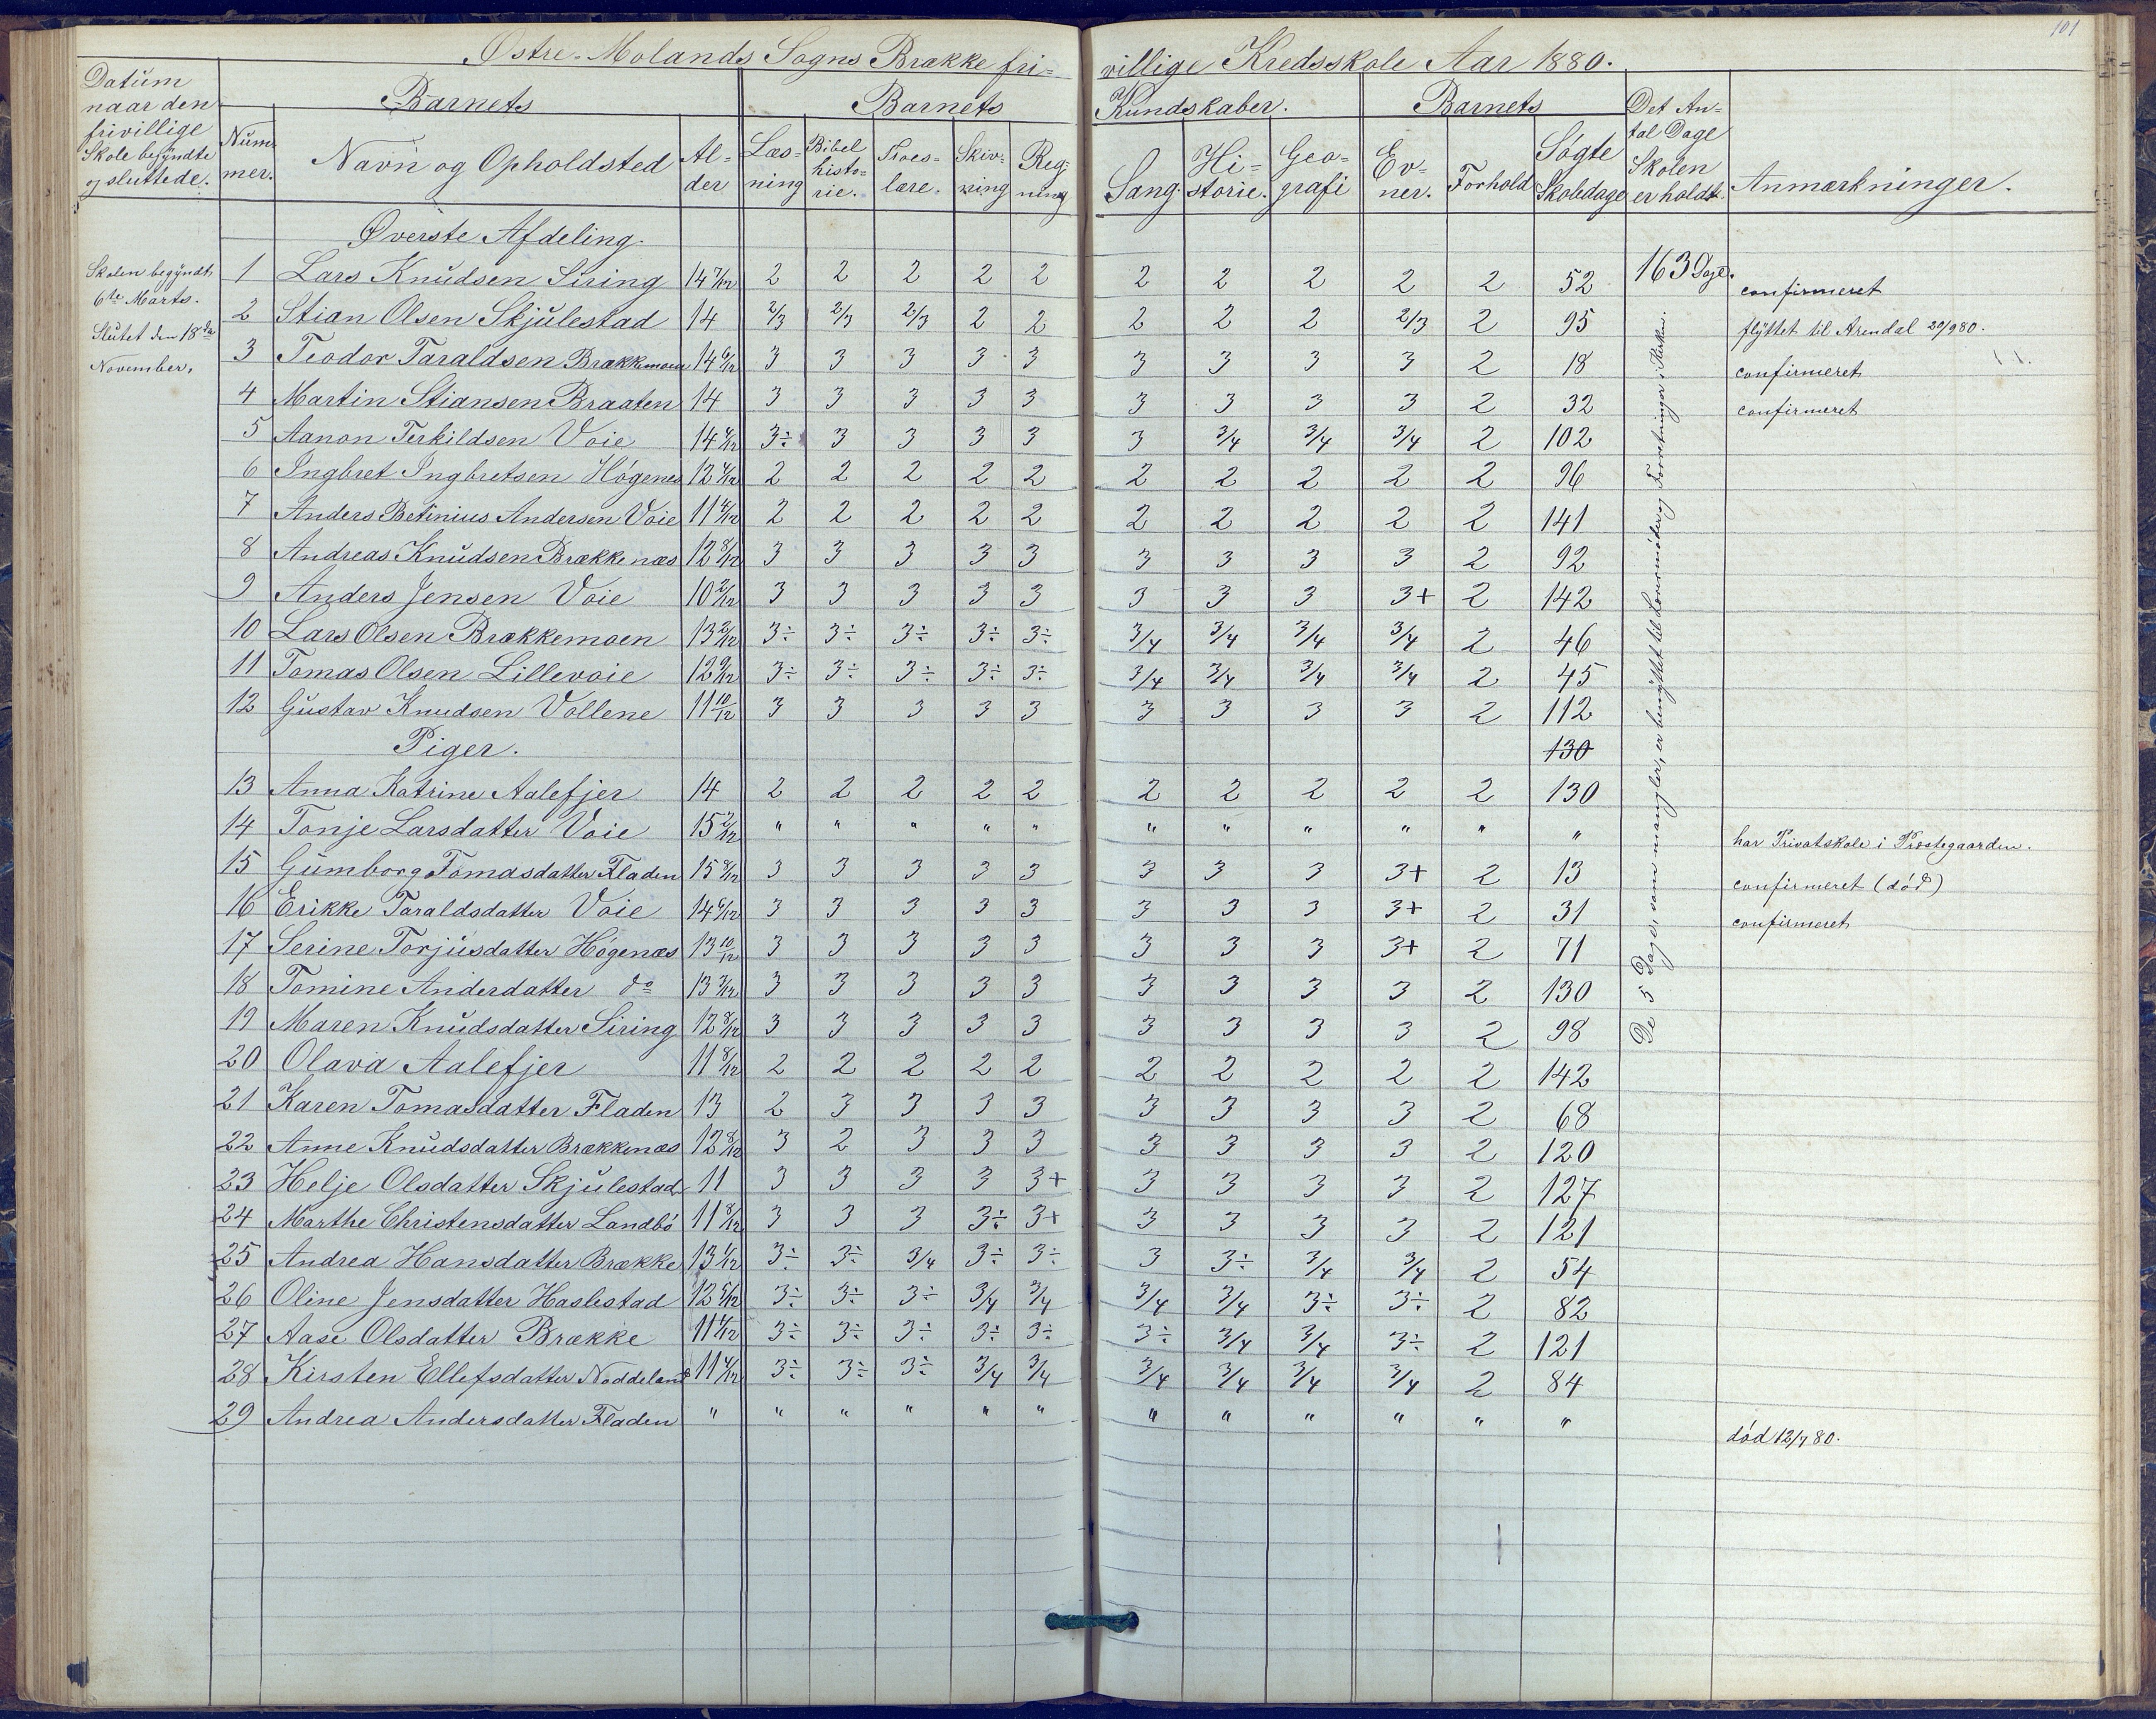 101
Østre-Molands Sogns Brække fri- villige Kredsskole Aar 1880.
Datum naar den frivillige Skole begyndte og sluttede.
Num- mer.
Barnets
Navn og Opholdsted
Al- der
Barnets Kundskaber.
Læs- ning
Bibel histo- rie.
Troes- lære.
Skriv- ning
Reg- ning
Sang.
Hi- storie.
Geo- grafi
Barnets
Ev- ner.
Forhold
Søgte Skoledage
Det An- tal Dage Skolen er holdt.
Anmærkninger.
Øverste Afdeling.
Skolen begyndt 6te Marts. Slutet den 18de November.
163 Dage.
De 5 Dage, som mangler, er benyttet til og Forretninger i Kirken.
1 Lars Knudsen Siring 14 7/12 2 2 2 2 2 2 2 2 2 2 52 confirmeret
2 Stian Olsen Skjulestad 14 2/3 2/3 2/3 2 2 2 2 2 2/3 2 95 flyttet til Arendal 20/9 80.
3 Teodor Taraldsen Brækkemoen 14 6/12 3 3 3 3 3 3 3 3 3 2 18 confirmeret
4 Martin Stiansen Braaten 14 3 3 3 3 3 3 3 3 3 2 32 confirmeret
5 Aanon Terkildsen Voie 14 4/12 3÷ 3 3 3 3 3 3/4 3/4 3/4 2 102
6 Ingbret Ingbretsen Høgenes 12 4/12 2 2 2 2 2 2 2 2 2 2 96
7 Anders Betinius Andersen Voie 11 4/12 2 2 2 2 2 2 2 2 2 2 141
8 Andreas Knudsen Brækkenæs 12 8/12 3 3 3 3 3 3 3 3 3 2 92
9 Anders Jensen Voie 10 2/12 3 3 3 3 3 3 3 3 3+ 2 142
10 Lars Olsen Brækkemoen 13 2/12 3÷ 3÷ 3÷ 3÷ 3÷ 3/4 3/4 3/4 3/4 2 46
11 Tomas Olsen Lillevoie 12 9/12 3÷ 3÷ 3÷ 3÷ 3÷ 3/4 3/4 3/4 3/4 2 45
12 Gustav Knudsen Vollene 11 10/12 3 3 3 3 3 3 3 3 3 2 112
Piger. 130
13 Anna Katrine Aalefjer 14 2 2 2 2 2 2 2 2 2 2 130
14 Tonje Larsdatter Voie 15 2/12 " " " " " " " " " " " har Privatskole i Præstegaarden.
15 Gumborg Tomasdatter Fladen 15 8/12 3 3 3 3 3 3 3 3 3+ 2 13 confirmeret (død)
16 Erikke Taraldsdatter Voie 14 6/12 3 3 3 3 3 3 3 3 3+ 2 31 confirmeret
17 Serine Torjusdatter Høgenæs 13 10/12 3 3 3 3 3 3 3 3 3+ 2 71
18 Tomine Anderdatter do 13 3/12 3 3 3 3 3 3 3 3 3 2 130
19 Maren Knudsdatter Siring 12 8/12 3 3 3 3 3 3 3 3 3 2 98
20 Olava Aalefjer 11 8/12 2 2 2 2 2 2 2 2 2 2 142
21 Karen Tomasdatter Fladen 13 2 3 3 3 3 3 3 3 3 2 68
22 Anne Knudsdatter Brækkenæs 12 8/12 3 2 3 3 3 3 3 3 3 2 120
23 Helje Olsdatter Skjulestad 11 3 3 3 3 3+ 3 3 3 3 2 127
24 Marthe Christensdatter Landbø 11 8/12 3 3 3 3÷ 3+ 3 3 3 3 2 121
25 Andrea Hansdatter Brække 13 1/12 3÷ 3÷ 3/4 3÷ 3÷ 3 3÷ 3/4 3/4 2 54
26 Oline Jensdatter Haslestad 12 5/12 3÷ 3÷ 3÷ 3/4 3/4 3/4 3/4 3÷ 3÷ 2 82
27 Aase Olsdatter Brække 11 4/12 3÷ 3÷ 3÷ 3÷ 3÷ 3÷ 3/4 3/4 3÷ 2 121
28 Kirsten Ellefsdatter Noddeland 11 4/12 3÷ 3÷ 3÷ 3/4 3/4 3/4 3/4 3/4 3/4 2 84
29 Andrea Andersdatter Fladen " " " " " " " " " " " " død 12/7 80.